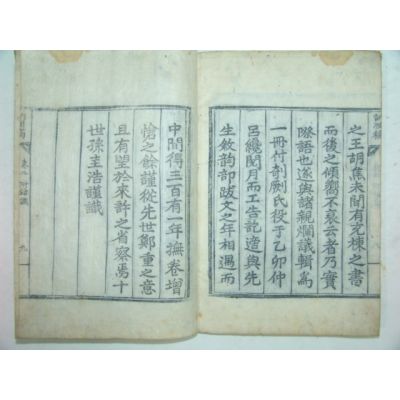 之王胡焦未聞有充棟之書
而後之傾嚮不衰云者乃實
際語也遂與諸親爛議輯為
一冊付剞劂氏役于乙卯仲
呂纔閱月而工告訖造與先
生敘韵部跋文之年相遇而
中間得三百有一年撫卷增
愴之餘謹從先世鄭重之意
且有望於來許之省察焉十
世孫圭浩謹識